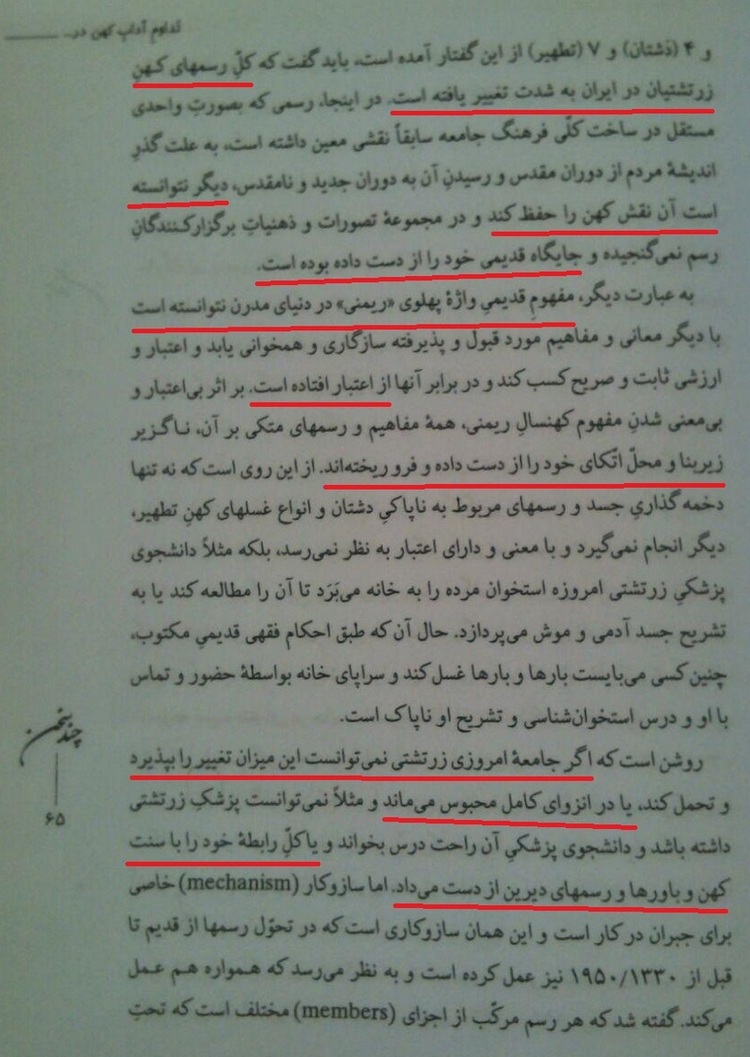 تداوم آداب کهن در...
و ۴ (دَشتان) و ۷ (تطهیر) از این گفتار آمده است، باید گفت که کلِّ رسمهای کهنِ
زرتشتیان در ایران به شدت تغییر یافته است. در اینجا، رسمی که بصورتِ واحدی
مستقل در ساخت کلّی فرهنگ جامعه سابقاً نقشی معین داشته است، به علت گذرِ
اندیشهٔ مردم از دوران مقدس و رسیدنِ آن به دوران جدید و نامقدس، دیگر نتوانسته
است آن نقش کهن را حفظ کند و در مجموعهٔ تصورات و ذهنیاتِ برگزارکنندگانِ
رسم نمی‌گنجیده و جایگاه قدیمی خود را از دست داده بوده است.
به عبارت دیگر، مفهومِ قدیمیِ واژهٔ پهلوی «ریمنی» در دنیای مدرن نتوانسته است
با دیگر معانی و مفاهیم مورد قبول و پذیرفته سازگاری و همخوانی یابد و اعتبار و
ارزشی ثابت و صریح کسب کند و در برابر آنها از اعتبار افتاده است. بر اثر بی‌اعتبار و
بی‌معنی شدنِ مفهوم کهنسالِ ریمنی، همهٔ مفاهیم و رسمهای متکی بر آن، ناگزیر
زیربنا و محلّ اتّکای خود را از دست داده و فرو ریخته‌اند. از این روی است که نه تنها
دخمه گذاریِ جسد و رسمهای مربوط به ناپاکیِ دشتان و انواع غسلهای کهنِ تطهیر،
دیگر انجام نمی‌گیرد و با معنی و دارای اعتبار به نظر نمی‌رسد، بلکه مثلاً دانشجوی
پزشکیِ زرتشتی امروزه استخوان مرده را به خانه می‌بَرَد تا آن را مطالعه کند یا به
تشریح جسد آدمی و موش می‌پردازد. حال آن که طبق احکام فقهی قدیمیِ مکتوب،
چنین کسی می‌بایست بارها و بارها غسل کند و سراپای خانه بواسطهٔ حضور و تماس
با او و درس استخوان‌شناسی و تشریح او ناپاک است.
روشن است که اگر جامعهٔ امروزی زرتشتی نمی‌توانست این میزان تغییر را بپذیرد
و تحمل کند، یا در انزوای کامل محبوس می‌ماند و مثلاً نمی‌توانست پزشکِ زرتشتی
داشته باشد و دانشجوی پزشکیِ آن راحت درس بخواند و یا کلِّ رابطهٔ خود را با سنت
کهن و باورها و رسمهای دیرین از دست می‌داد. اما سازوکار (mechanism) خاصی
برای جبران در کار است و این همان سازوکاری است که در تحوّل رسمها از قدیم تا
قبل از ۱۹۵۰/۱۳۳۰ نیز عمل کرده است و به نظر می‌رسد که همواره هم عمل
می‌کند. گفته شد که هر رسم مرکّب از اجزای (members) مختلف است که تحتِ
چند سخن
۶۵